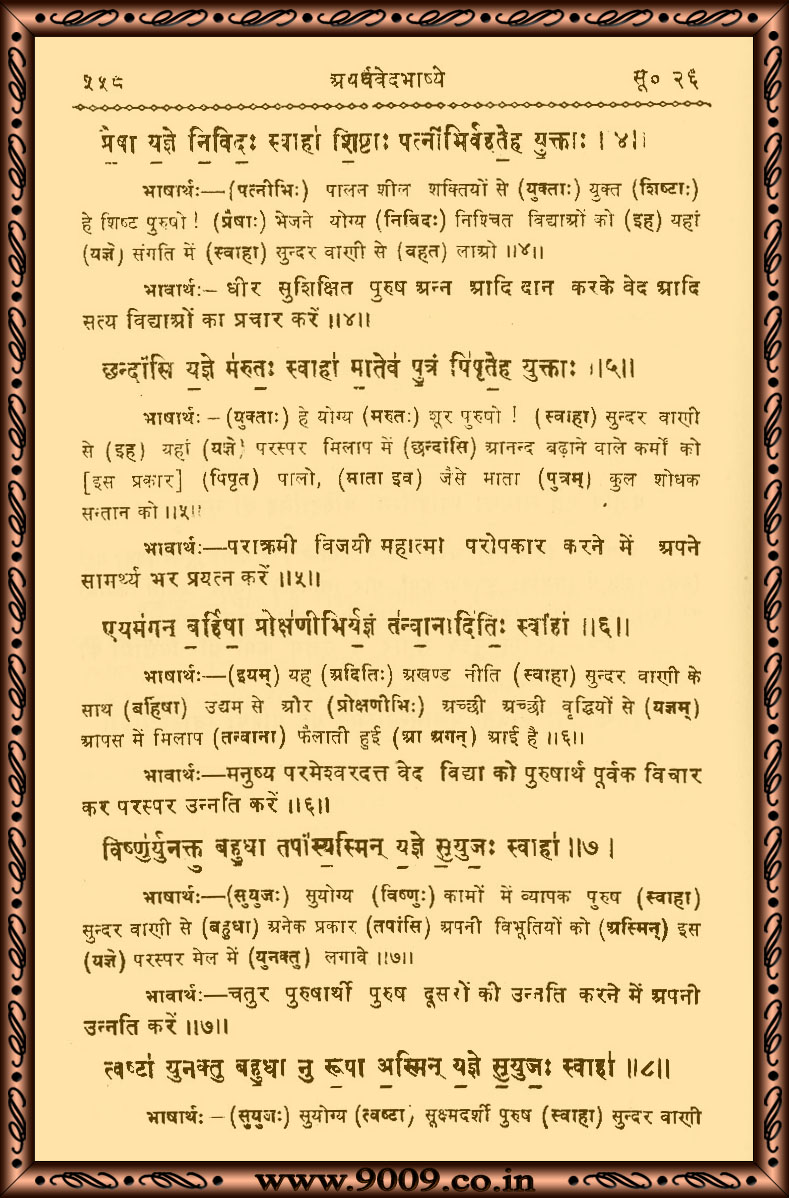 ५५८ अथर्ववेदभाष्ये सू० २६
प्रैषा यज्ञे निविदः स्वाहा शिष्टाः पत्नीभिर्वहतेह युक्ताः ।४।।
भाषार्थः—(पत्नीभिः) पालन शील शक्तियों से (युक्ताः) युक्त (शिष्टाः)
हे शिष्ट पुरुषो ! (प्रैषाः) भेजने योग्य (निविदः) निश्चित विद्याओं को (इह) यहां
(यज्ञे) संगति में (स्वाहा) सुन्दर वाणी से (वहत) लाओ ॥४॥
भावार्थः— धीर सुशिक्षित पुरुष अन्न आदि दान करके वेद आदि
सत्य विद्याओं का प्रचार करें ॥४॥
छन्दांसि यज्ञे मरुतः स्वाहा मातेव पुत्रं पिपृतेह युक्ताः ॥५॥
भाषार्थः –(युक्ताः) हे योग्य (मरुतः) शूर पुरुषो ! (स्वाहा) सुन्दर वाणी
से (इह) यहां (यज्ञे) परस्पर मिलाप में (छन्दांसि) आनन्द बढ़ाने वाले कर्मों को
[इस प्रकार] (पिपृत) पालो, (माता इव) जैसे माता (पुत्रम्) कुल शोधक
सन्तान को ॥५॥
भावार्थः—पराक्रमी विजयी महात्मा परोपकार करने में अपने
सामर्थ्य भर प्रयत्न करें ॥५॥
एयमगन् बर्हिषा प्रोक्षणीभिर्यज्ञं तन्वानादितिः स्वाहा ॥६॥
भाषार्थः—(इयम्) यह (अदितिः) अखण्ड नीति (स्वाहा) सुन्दर वाणी के
साथ (बर्हिषा) उद्यम से और (प्रोक्षणीभिः) अच्छी अच्छी वृद्धियों से (यज्ञम्)
आपस में मिलाप (तन्वाना) फैलाती हुई (आ अगन्) आई है ॥६॥
भावार्थः—मनुष्य परमेश्वरदत्त वेद विद्या को पुरुषार्थ पूर्वक विचार
कर परस्पर उन्नति करें ॥६॥
विष्णुर्युनक्तु बहुधा तपांस्यस्मिन् यज्ञे सुयुजः स्वाहा ॥७।
भाषार्थः—(सुयुजः) सुयोग्य (विष्णुः) कामों में व्यापक पुरुष (स्वाहा)
सुन्दर वाणी से (बहुधा) अनेक प्रकार (तपांसि) अपनी विभूतियों को (अस्मिन्) इस
(यज्ञे) परस्पर मेल में (युनक्तु) लगावे ॥७॥
भावार्थः—चतुर पुरुषार्थी पुरुष दूसरों की उन्नति करने में अपनी
उन्नति करें ॥७॥
त्वष्टा युनक्तु बहुधा नु रूपा अस्मिन् यज्ञे सुयुजः स्वाहा ॥८॥
भाषार्थः –(सुयुजः) सुयोग्य (त्वष्टा) सूक्ष्मदर्शी पुरुष (स्वाहा) सुन्दर वाणी
www.9009.co.in